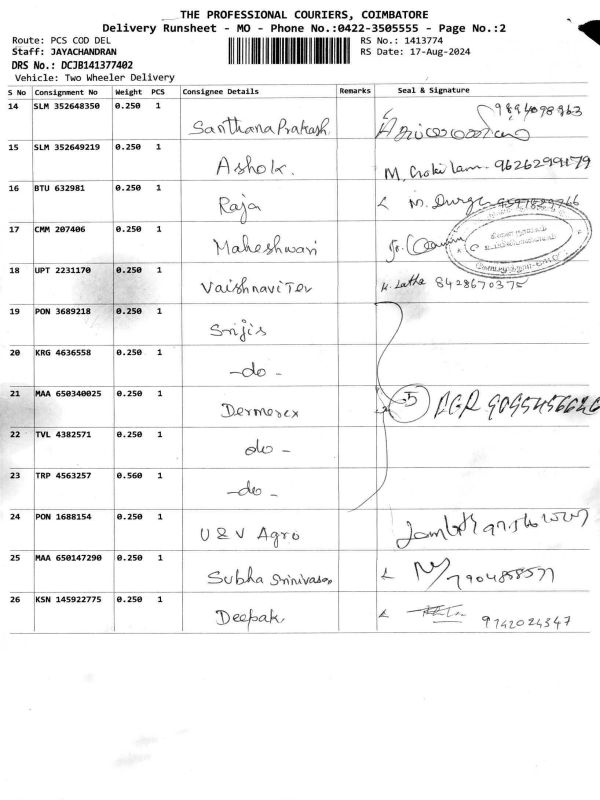 THE PROFESSIONAL COURIERS, COIMBATORE
Delivery Runsheet - MO - Phone No.:0422-3505555 - Page No.:2
Route: PCS COD DEL
RS No.: 1413774
Staff: JAYACHANDRAN
RS Date: 17-Aug-2024
DRS No.: DCJB141377402
Vehicle: Two Wheeler Delivery
S No Consignment No Weight PCS Consignee Details Remarks Seal & Signature
14 SLM 352648350 0.250 1 Santhana Prakash 9894098363
15 SLM 352649219 0.250 1 Ashok. M. 9626299179
16 BTU 632981 0.250 1 Raja
17 CMM 207406 0.250 1 Maheshwari
18 UPT 2231170 0.250 1 Vaishnavi Tex K. Latha 8428670375
19 PON 3689218 0.250 1 Srijis
20 KRG 4636558 0.250 1 -do-
21 MAA 650340025 0.250 1 Dermorex 5
22 TVL 4382571 0.250 1 do -
23 TRP 4563257 0.560 1 -do-
24 PON 1688154 0.250 1 U & V Agro
25 MAA 650147290 0.250 1 Subha Srinivasan 7904858577
26 KSN 145922775 0.250 1 Deepak 9742024347